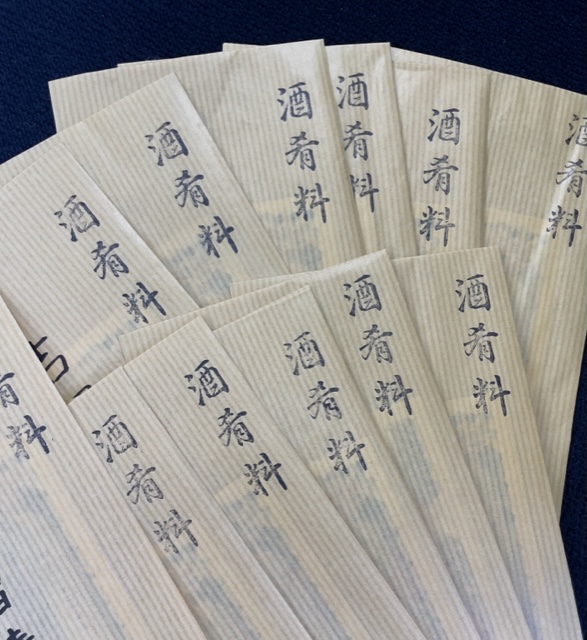 酒肴料
酒肴料
酒肴料
酒肴料
酒肴料
酒肴料
肴料
酒肴料
酒肴料
酒肴料
酒肴料
酒肴料